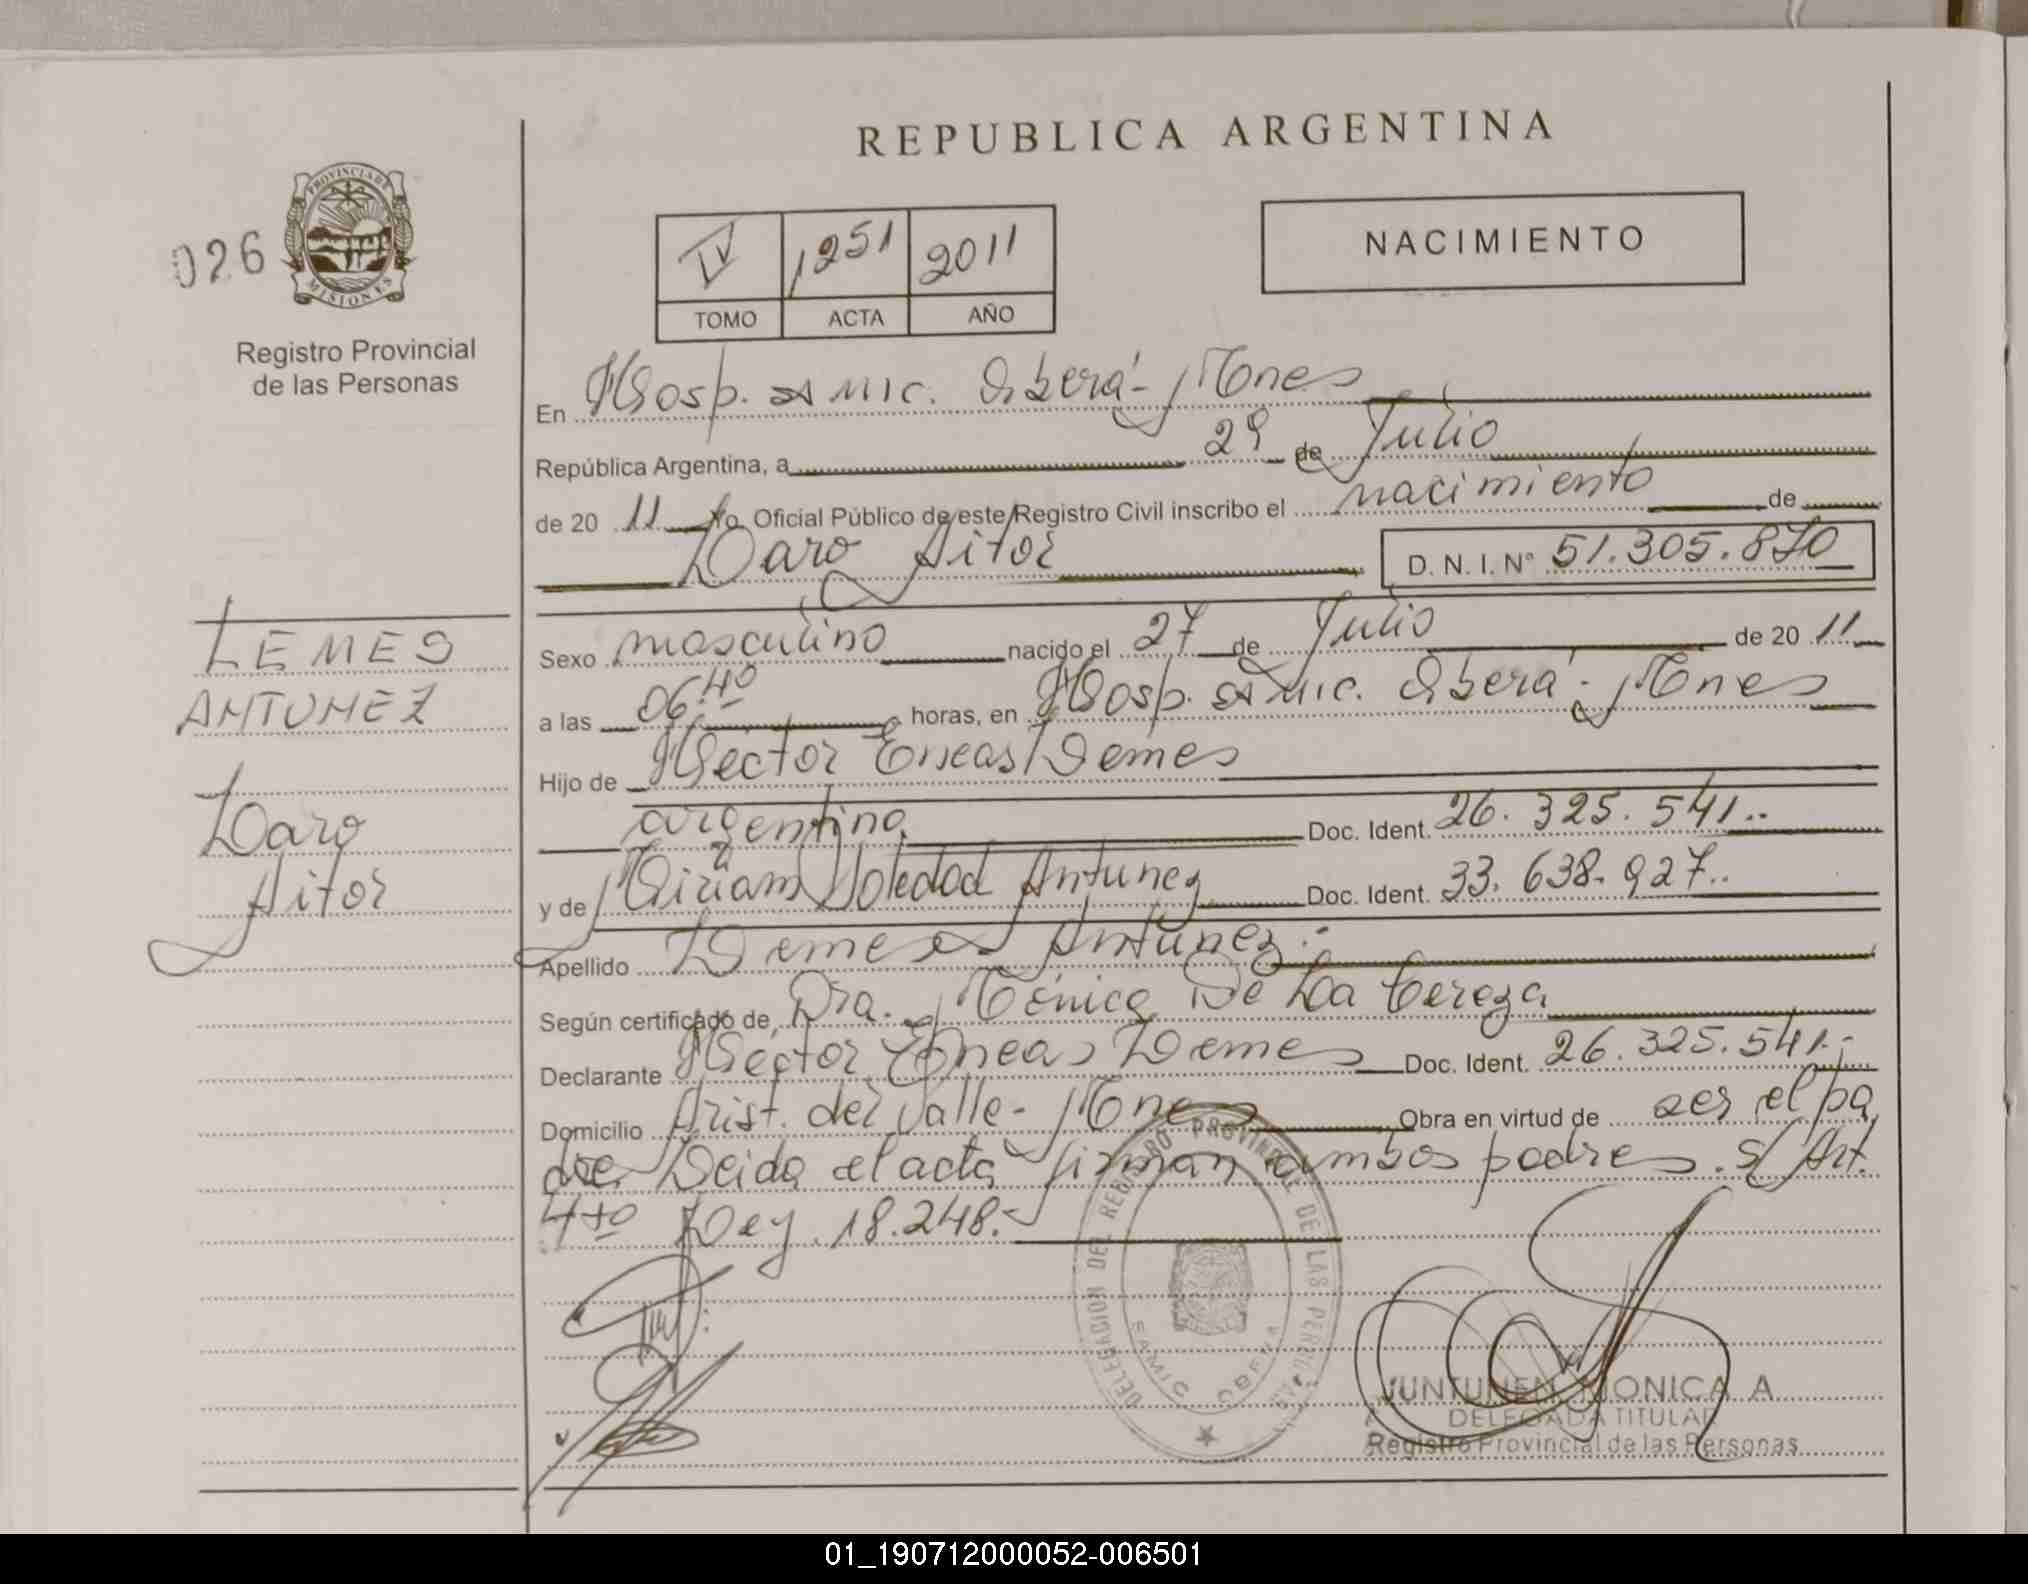 REPUBLICA ARGENTINA
026
PROVINCIA DE
MISIONES
Registro Provincial
de las Personas
IV 1251 2011
TOMO ACTA AÑO
NACIMIENTO
En Hosp. SAMIC. Oberá - Mnes
República Argentina, a 29 de Julio
de 20 11 Yo Oficial Público de este Registro Civil inscribo el nacimiento de
Laro Aitor
D. N. I. Nº 51.305.870
LEMES
ANTUNEZ
Laro
Aitor
Sexo masculino nacido el 27 de Julio de 20 11
a las 06.40 horas, en Hosp. SAMIC. Oberá - Mnes
Hijo de Héctor Eneas Lemes
argentino Doc. Ident. 26.325.541..
y de Miriam Soledad Antunez Doc. Ident. 33.638.927..
Apellido Lemes Antunez.-
Según certificado de Dra. Mónica De La Cereza
Declarante Héctor Eneas Lemes Doc. Ident. 26.325.541.-
Domicilio Arist. del Valle - Mnes Obra en virtud de ser el pa
dre Leida el acta firman ambos padres. S/ Art.
4to Ley. 18.248.-
DELEGACION DEL REGISTRO PROVINCIAL DE LAS PERSONAS
SAMIC OBERA
JUNTUNEN MONICA A
DELEGADA TITULAR
Registro Provincial de las Personas
01_190712000052-006501